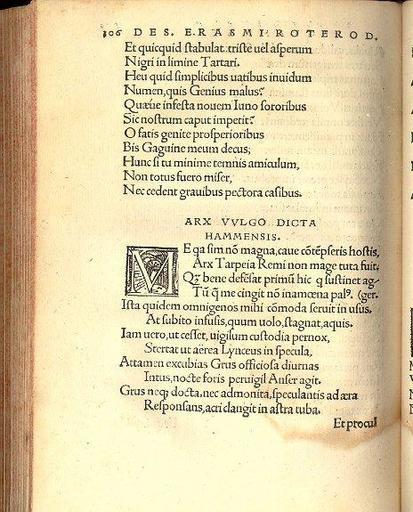 306 DES. ERASMI ROTEROD.
Et quicquid stabulat triste uel asperum
Nigri in limine Tartari.
Heu quid simplicibus uatibus inuidum
Numen, quis Genius malus?
Quæue infesta nouem Iuno sororibus
Sic nostrum caput imperit?
O fatis genite prosperioribus
Bis Gaguine meum decus,
Hunc si tu minime temnis amiculum,
Non totus fuero miser,
Nec cedent grauibus pectora casibus.
ARX VVLGO DICTA
HAMMENSIS.
ME qa sim nõ magna, caue cõtẽpseris hostis,
Arx Tarpeia Remi non mage tuta fuit.
Qꝫ bene defẽsat primũ hic q sustinet ag-
Tũ q̃ me cingit nõ inamœna palꝰ. (ger.
Ista quidem omnigenos mihi cõmoda seruit in usus.
At subito infusis, quum uolo, stagnat, aquis.
Iam uero, ut cesset, uigilum custodia pernox,
Stertat ut aërea Lynceus in specula,
Attamen excubias Grus officiosa diurnas
Intus, nocte foris peruigil Anser agit.
Grus neqꝫ docta, nec admonita, speculantis ad æra
Responsans, acri clangit in astra tuba.
Et procul